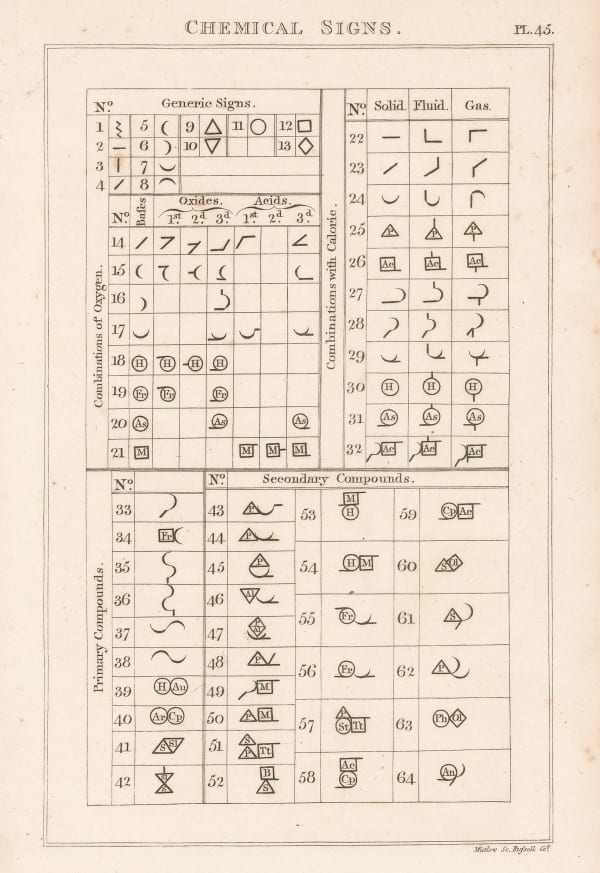 CHEMICAL SIGNS.
PL.45.
Nº. Generic Signs.
1 5 9 11 12
2 6 10 13
3 7
4 8
Nº. Baſes Oxides. 1.st 2.d 3.d Acids. 1.st 2.d 3.d
Combinations of Oxygen.
14
15
16
17
18 H H H H
19 Fr Fr Fr
20 As As As
21 M M M M
Combinations with Caloric.
Nº. Solid. Fluid. Gas.
22
23
24
25 P P P
26 Ac Ac Ac
27
28
29
30 H H H
31 As As As
32 Ac Ac Ac
Primary Compounds.
Nº.
33
34 Fr
35
36
37
38
39 H Au
40 Ar Cp
41 S Sl
42 S S
Nº. Secondary Compounds.
43 P
44 P
45 P
46 Al
47 P Al
48 P
49 M
50 P M
51 S P Tt
52 B S
53 M H
54 H M
55 Fr
56 Fr
57 P St Tt
58 Ac Cp
59 Cp Ac
60 S Ol
61 S
62 P
63 Ph Ol
64 Au